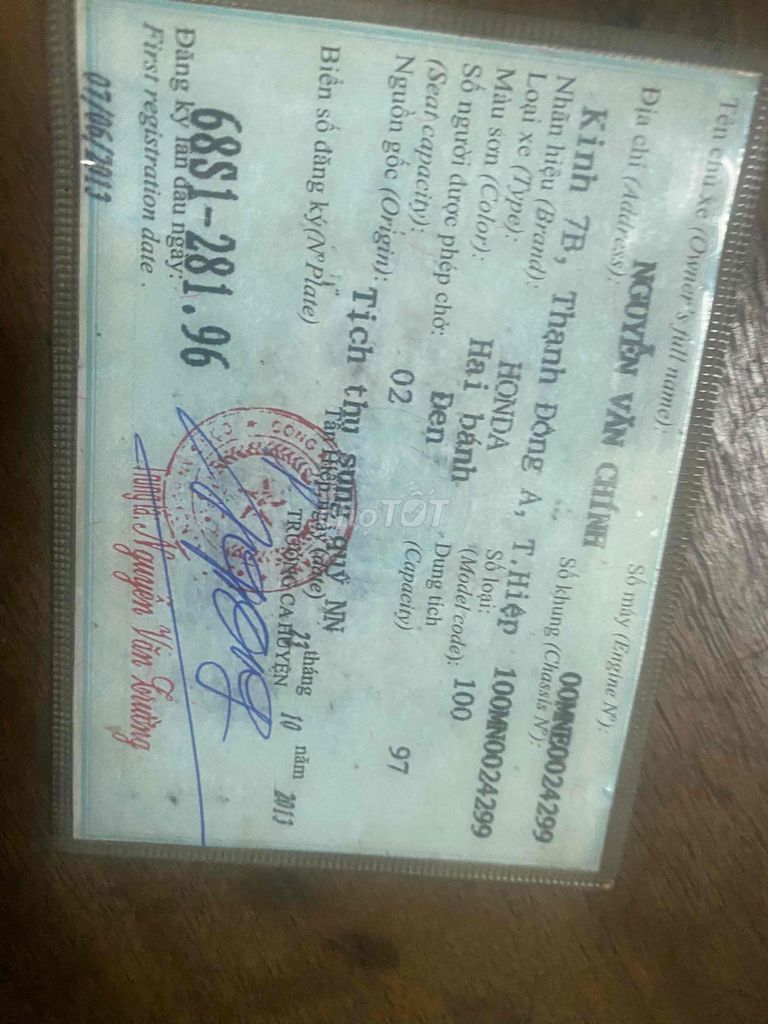 Tên chủ xe (Owner's full name): Số máy (Engine Nº):
NGUYỄN VĂN CHÍNH 00MNE0024299
Địa chỉ (Address): Số khung (Chassis Nº):
Kinh 7B, Thạnh Đông A, T.Hiệp 100MN0024299
Nhãn hiệu (Brand): HONDA Số loại:
Loại xe (Type): Hai bánh (Model code): 100
Màu sơn (Color): Đen Dung tích
Số người được phép chở: 02 (Capacity) 97
(Seat capacity):
Nguồn gốc (Origin): Tịch thu sung quỹ NN
Biển số đăng ký (Nº Plate) Tân Hiệp, ngày (date) 11 tháng 10 năm 2013
68S1-281.96 TRƯỞNG CA HUYỆN
CÔNG
Đăng ký lần đầu ngày:
First registration date.
07/06/2013
Trung tá Nguyễn Văn Trường
CHỢ TỐT